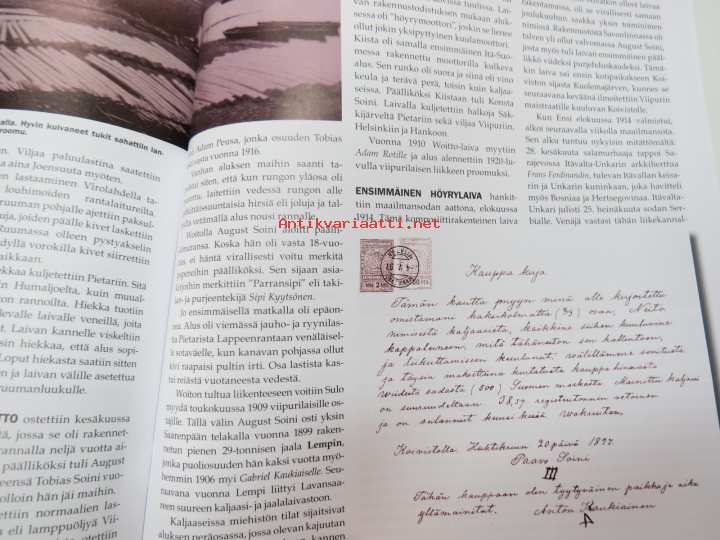 alla. Hyvin kuivaneet tukit sahattiin lan-
roomu.
en. Viljaa paluulastina saatettiin
a aina loensuuta myöten.
en lastaaminen. Virolahdella ta-
louhimoiden rantalaitureilta.
ruuman pohjalle ajettiin paksul-
ju, joiden päälle kivet laskettiin
Ruumassa olleen pystyakselin
ellä vorokilla kivet siirrettiin
aikkaan.
ekkaa kuljetettiin Pietariin. Sitä
n Humaljoelta, kuin muual-
on rannoilta. Hiekka tuotiin
levalle laivalle veneillä, joita
ot. Laivan kannelle viskeltiin
n hiekkaa, että alus sopi-
Loput hiekasta saatiin sitten
n ja laivan välille asetettua
ruumanluukulle.
TTO ostettiin kesäkuussa
stä, jossa se oli rakennet-
rannalla neljä vuotta ai-
n päälliköksi tuli August
eensä Tobias Soini vuo-
olloin hän jäi maihin.
ettiin normaalien las-
n eli lamppuöljyä Vii-
Adam Peusa, jonka osuuden Tobias
osti vuonna 1916.
Vanhan aluksen maihin saanti ta-
pahtui siten, että kun rungon yläosa oli
laitettiin vedessä rungon alle
hirsiä eli joluja ja talj-
talla vetämällä alus nousi rannalle.
Woitolla August Soini aloitti pääl-
Koska hän oli vasta 18-vuo-
ei häntä virallisesti voitu merkitä
papereihin päälliköksi. Sen sijaan asia-
kirjoihin merkittiin "Parransipi" eli taki-
ja purjeentekijä Sipi Kyytsönen.
Jo ensimmäisellä matkalla oli epäon-
nea. Alus oli viemässä jauho- ja ryynilas-
tia Pietarista Lappeenrantaan venäläisel-
le sotaväelle, kun kanavan pohjassa ollut
kivi raapaisi pultin irti. Osa lastista kas-
tui reiästä vuotaneesta vedestä.
Woiton tultua liikenteeseen voitiin Sulo
myydä toukokuussa 1909 viipurilaisille os-
tajille. Tällä välin August Soini osti yksin
Suurenpään telakalla vuonna 1899 raken-
netun pienen 29-tonnisen jaala Lempin,
jonka puoliosuuden hän kaksi vuotta myö-
hemmin 1906 myi Gabriel Kaukiaiselle. Seu-
raavana vuonna Lempi liittyi Lavansaa-
reen suureen kaljaasi- ja jaalalaivastoon.
Kaljaaseissa miehistön tilat sijaitsivat
aluksen peräosassa, jossa olevan kajuutan
tuulissa.
van rakennustodistuksen mukaan aluk-
sessa oli "höyrymoottori", joskin se lienee
ollut jokin yksipyttyinen kuulamoottori.
Kiista oli samalla ensimmäinen Itä-Suo-
messa rakennettu moottorilla kulkeva
alus. Sen runko oli suora ja siinä oli vino
keula ja terävä perä, toisin kuin kaljaa-
seissa. Päälliköksi Kiistaan tuli Konsta
Soini. Laivalla kuljetettiin halkoja Säk-
kijärveltä Pietariin sekä viljaa Viipuriin,
Helsinkiin ja Hankoon.
Vuonna 1910 Woitto-laiva myytiin
Adam Rotille ja alus alennettiin 1920-lu-
vulla viipurilaisen liikkeen proomuksi.
ENSIMMÄINEN HÖYRYLAIVA hankit-
tiin maailmansodan aattona, elokuussa
1914. Tämä komposiittirakenteinen laiva
laivaan, oli se virallisesti samaan
joulukuuhun saakka yksin tranmisen
nimissä. Rakennustöitä Savonlinnassa oli
talven yli ollut valvomassa August Soini,
josta myös tuli laivan ensimmäinen pääl-
likkö viideksi purjehduskaudeksi. Tämä-
kin laiva sai ensin kotipaikakseen Koi-
viston sijasta Kuolemajärven, kunnes se
seuraavana keväänä ilmoitettiin Viipurin
maistraatille kuuluvan Koivistolle.
Kun Ensi elokuussa 1914 valmistui,
alkoi seuraavalla viikolla maailmansota.
Sen alku tuntuu nykyisin mitättömältä.
28. kesäkuuta salamurhaaja tappoi Sa-
rajevossa Itävalta-Unkarin arkkiherttua
Frans Ferdinandin, Itävallan keisa-
rin ja Unkarin kuninkaan, joka havitteli
myös Bosniaa ja Hertsegovinaa. Itävalta-
Unkari julisti 25. heinäkuuta sodan Ser-
bialle. Venäjä vastusti tähän liikekannal-
Antikvariaatti.net
Kauppa kirja
Tämän kautta myyn minä alle kirjoitettu
omistamani kaksikolmatta (2/3) osaa Niito
nimisestä kaljaasista, kaikkine siihen kuuluvine
kappaleineen, mitä tähänaston on hallentoon,
ja liikuttamiseen kuulunut.
ja täysin maksettuna
viidestä sadasta (500) Suomen markasta. Mainittu kaljasi
on suuruudeltaan 38,59 registertonnin vetoinen
ja on uulannut kuusi kesää
Koivistolla Huhtikuun 20 päivä 1897.
Paavo Soini
III
Tähän kauppaan olen tyytyväinen paikka ja aika
yltämainitut. Anton Kaukiainen